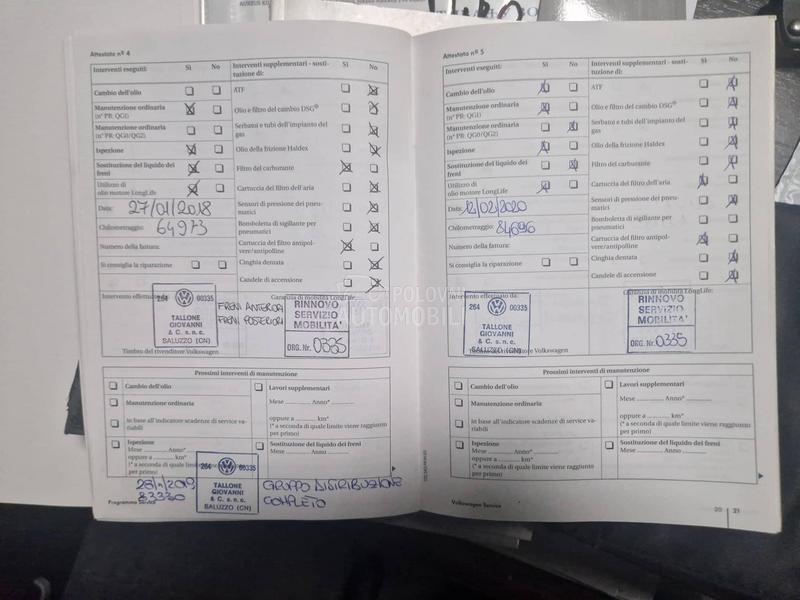 Attestato nº 4
Interventi eseguiti: Sì No
Cambio dell'olio
Manutenzione ordinaria
(nº PR: QG1)
Manutenzione ordinaria
(nº PR: QG0/QG2)
Ispezione
Sostituzione del liquido dei
freni
Utilizzo di
olio motore LongLife
Data: 27/01/2018
Chilometraggio: 64973
Numero della fattura:
Si consiglia la riparazione
Interventi supplementari - sosti-
tuzione di: Sì No
ATF
Olio e filtro del cambio DSG®
Serbatoi e tubi dell'impianto del
gas
Olio della frizione Haldex
Filtro del carburante
Cartuccia del filtro dell'aria
Sensori di pressione dei pneu-
matici
Bomboletta di sigillante per
pneumatici
Cartuccia del filtro antipol-
vere/antipolline
Cinghia dentata
Candele di accensione
Intervento effettuato
264 00335
TALLONE
GIOVANNI
& C. s.n.c.
SALUZZO (CN)
Timbro del rivenditore Volkswagen
FRENI ANTERIORI
FRENI POSTERIORI
Garanzia di mobilità LongLife:
RINNOVO
SERVIZIO
MOBILITA'
ORG. Nr. 0335
Prossimi interventi di manutenzione
Cambio dell'olio
Manutenzione ordinaria
in base all'indicatore scadenze di service va-
riabili
Ispezione
Mese Anno*
oppure a km*
(* a seconda di quale limite viene raggiunto
per primo)
Lavori supplementari
Mese Anno*
oppure a km*
(* a seconda di quale limite viene raggiunto
per primo)
Sostituzione del liquido dei freni
Mese Anno
264 00335
TALLONE
GIOVANNI
& C. s.n.c.
SALUZZO (CN)
83330
GRUPPO DISTRIBUZIONE
COMPLETO
Programma Service
Attestato nº 5
Interventi eseguiti: Sì No
Cambio dell'olio
Manutenzione ordinaria
(nº PR: QG1)
Manutenzione ordinaria
(nº PR: QG0/QG2)
Ispezione
Sostituzione del liquido dei
freni
Utilizzo di
olio motore LongLife
Data: 12/02/2020
Chilometraggio: 84696
Numero della fattura:
Si consiglia la riparazione
Interventi supplementari - sosti-
tuzione di: Sì No
ATF
Olio e filtro del cambio DSG®
Serbatoi e tubi dell'impianto del
gas
Olio della frizione Haldex
Filtro del carburante
Cartuccia del filtro dell'aria
Sensori di pressione dei pneu-
matici
Bomboletta di sigillante per
pneumatici
Cartuccia del filtro antipol-
vere/antipolline
Cinghia dentata
Candele di accensione
Intervento effettuato da:
264 00335
TALLONE
GIOVANNI
& C. s.n.c.
SALUZZO (CN)
Volkswagen
Garanzia di mobilità LongLife:
RINNOVO
SERVIZIO
MOBILITA'
ORG. Nr. 0335
Prossimi interventi di manutenzione
Cambio dell'olio
Manutenzione ordinaria
in base all'indicatore scadenze di service va-
riabili
Ispezione
Mese Anno*
oppure a km*
(* a seconda di quale limite viene raggiunto
per primo)
Lavori supplementari
Mese Anno*
oppure a km*
(* a seconda di quale limite viene raggiunto
per primo)
Sostituzione del liquido dei freni
Mese Anno
Volkswagen Service
20 21
AUTOMOBILI